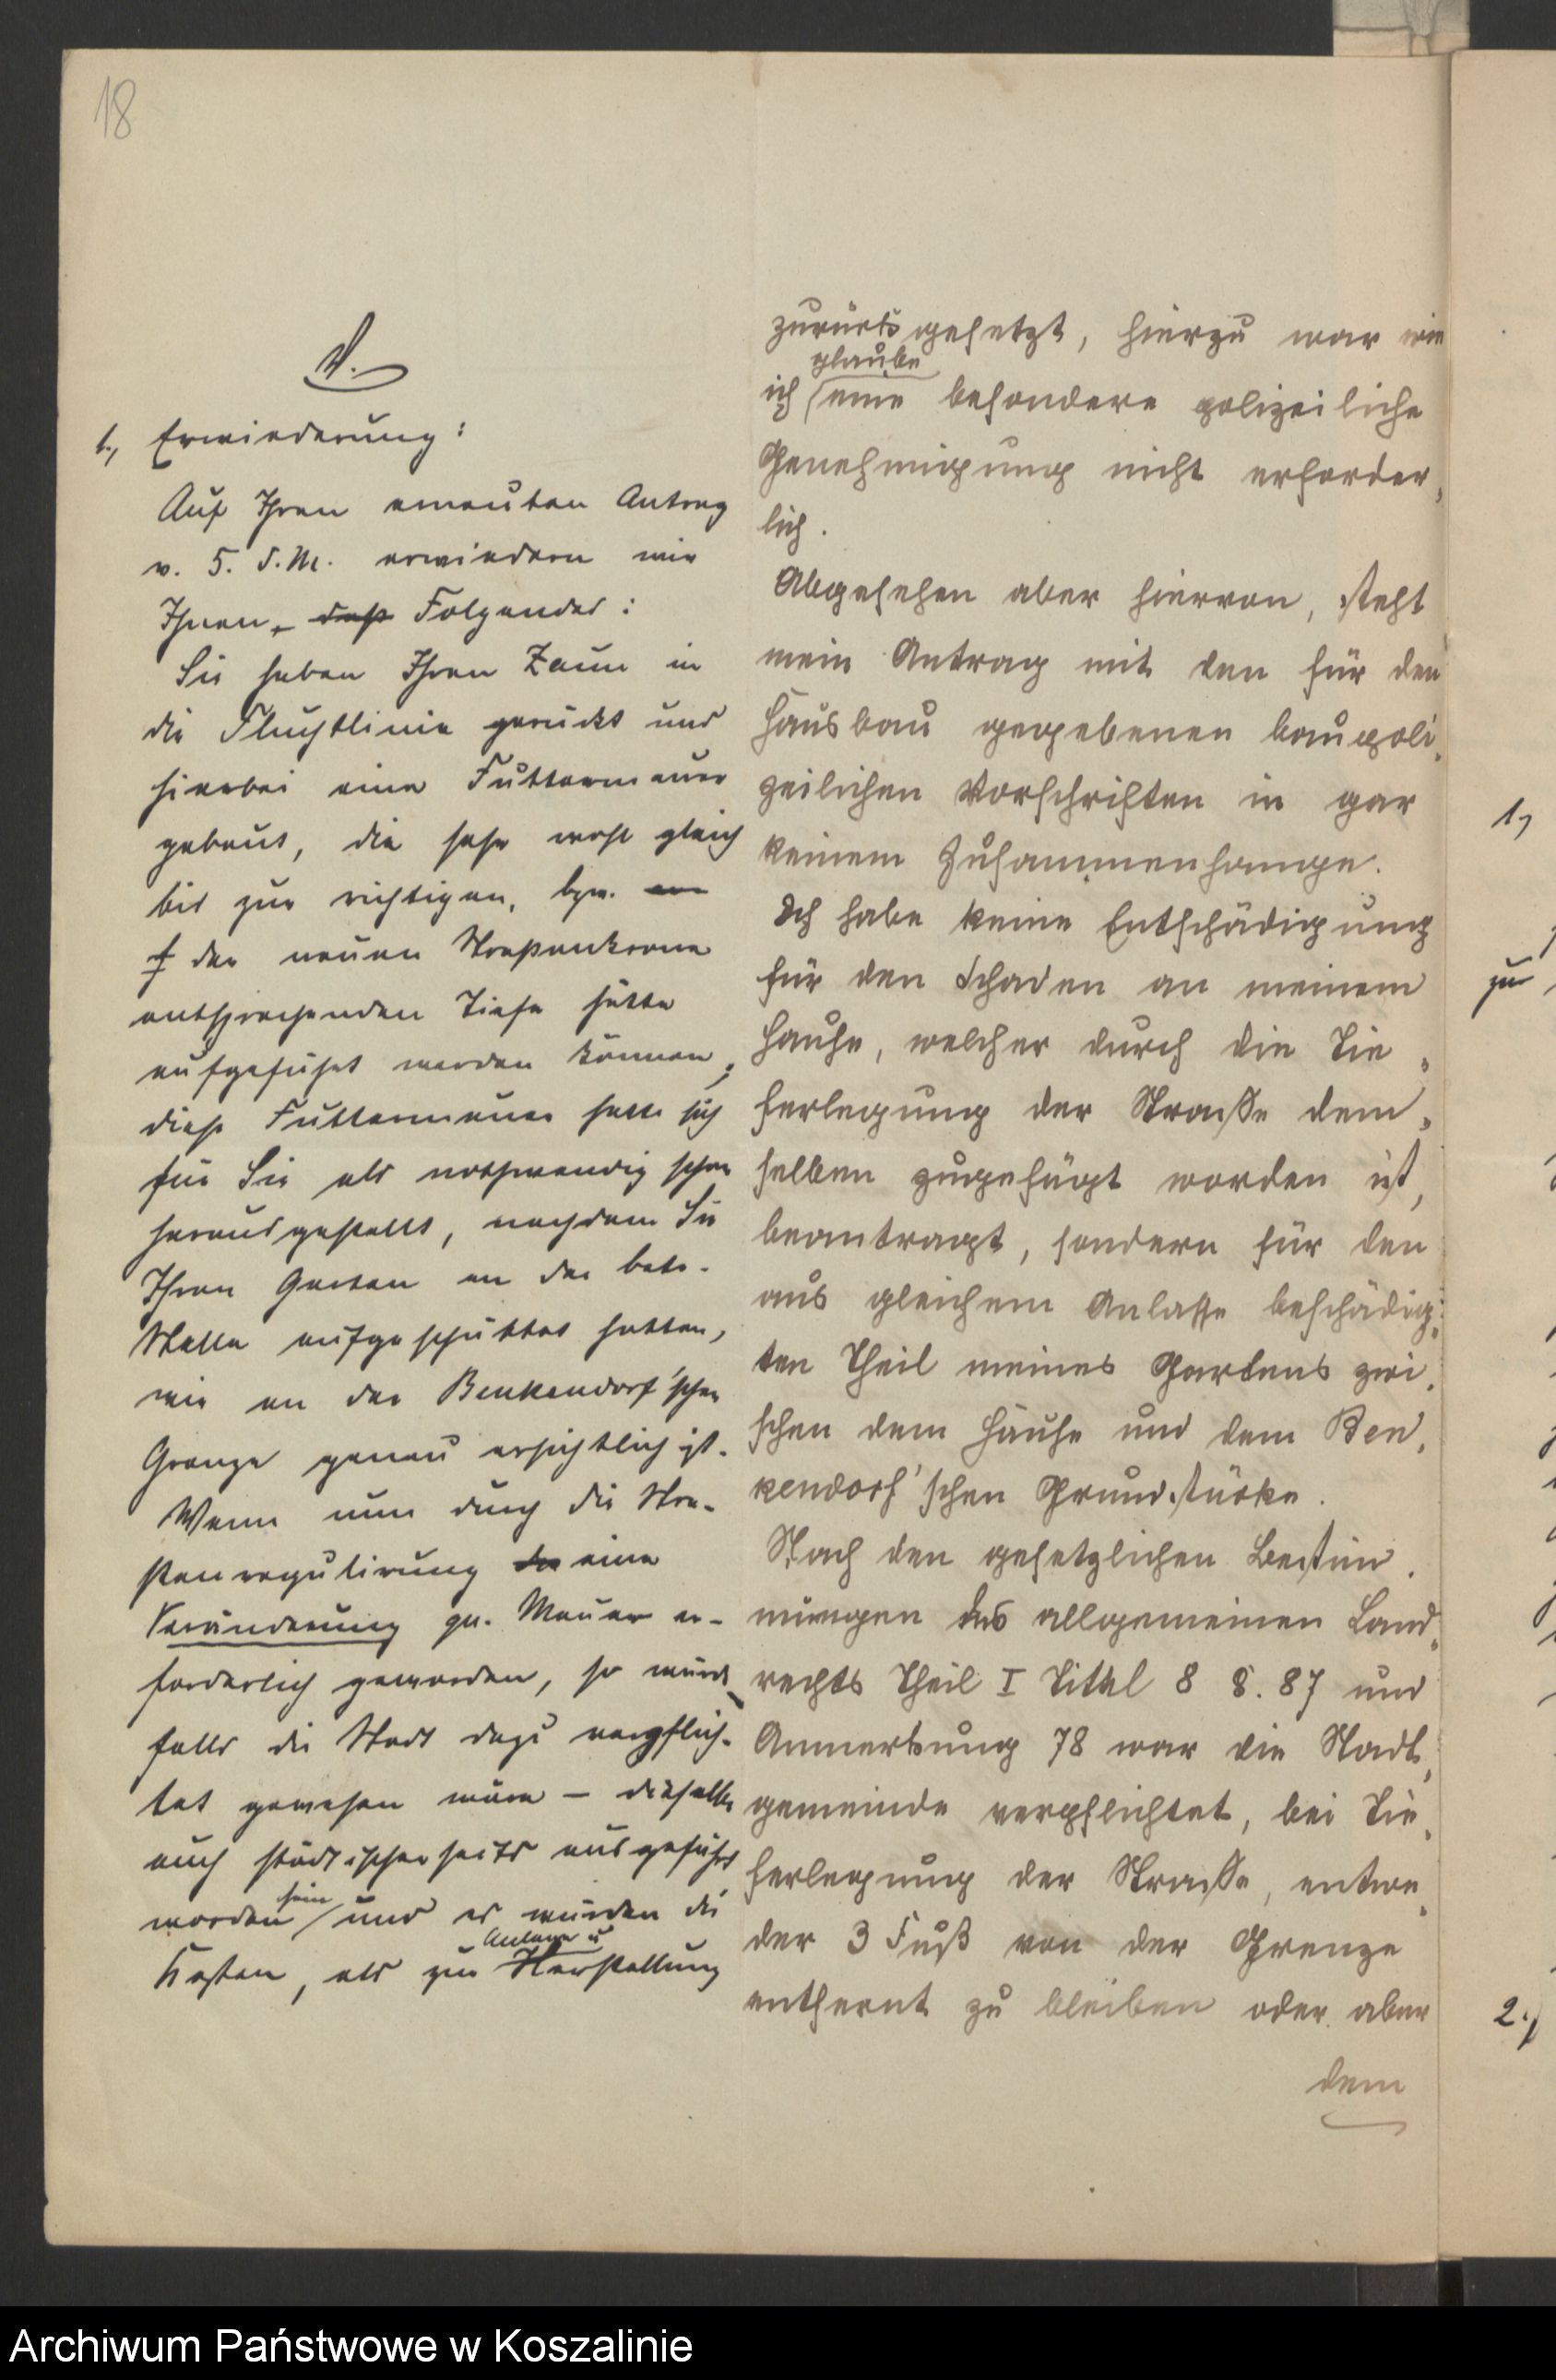 18
V.
1., Erwiederung:
Auf Ihren erneuten Antrag
v. 5. d. M. erwiedern wir
Ihnen, daß Folgendes:
Sie haben Ihren Zaun in
die Fluchtlinie gerückt und
hierbei eine Futtermauer
gebaut, die sehr wohl gleich
bis zur richtigen, bzw.
der neuen Straßenkrone
entsprechenden Tiefe hätte
aufgeführt werden können;
diese Futtermauer hatte sich
für Sie als nothwendig schon
herausgestellt, nachdem Sie
Ihren Garten an der betr.
Stelle aufgeschüttet hatten,
wie an der Benkendorf'schen
Grenze genau ersichtlich ist.
Wenn nun durch die Stra-
ßenregulirung eine
Veränderung gen. Mauer er-
forderlich geworden, so würde
falls die Stadt dazu verpflich-
tet gewesen wäre – dieselbe
auch städtischerseits ausgeführt
worden sein und es würden die
Kosten, als zur Anlage u Herstellung
zurück gesetzt, hierzu war wie
ich glaube eine besondere polizeiliche
Genehmigung nicht erforder,
lich.
Abgesehen aber hiervon, steht
mein Antrag mit den für den
Hausbau gegebenen baupoli,
zeilichen Vorschriften in gar
keinem Zusammenhange.
Ich habe keine Entschädigung
für den Schaden an meinem
Hause, welcher durch die Tie,
ferlegung der Straße dem,
selben zugefügt worden ist,
beantragt, sondern für den
aus gleichem Anlasse beschädig,
ten Theil meines Gartens zwi,
schen dem Hause und dem Ben,
kendorf'schen Grundstücke.
Nach den gesetzlichen Bestim,
mungen des allgemeinen Land,
rechts Theil I Tittel 8 §. 87 und
Anmerkung 78 war die Stadt,
gemeinde verpflichtet, bei Tie,
ferlegung der Straße, entwe,
der 3 Fuß von der Grenze
entfernt zu bleiben oder aber
dem
1,
zur
2.,
Archiwum Państwowe w Koszalinie